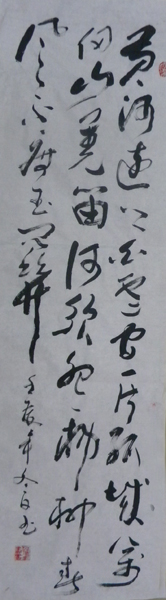 黄河遠上白雲间一片孤城萬
仞山羌笛何须怨楊柳春
风不度玉门關壬辰年